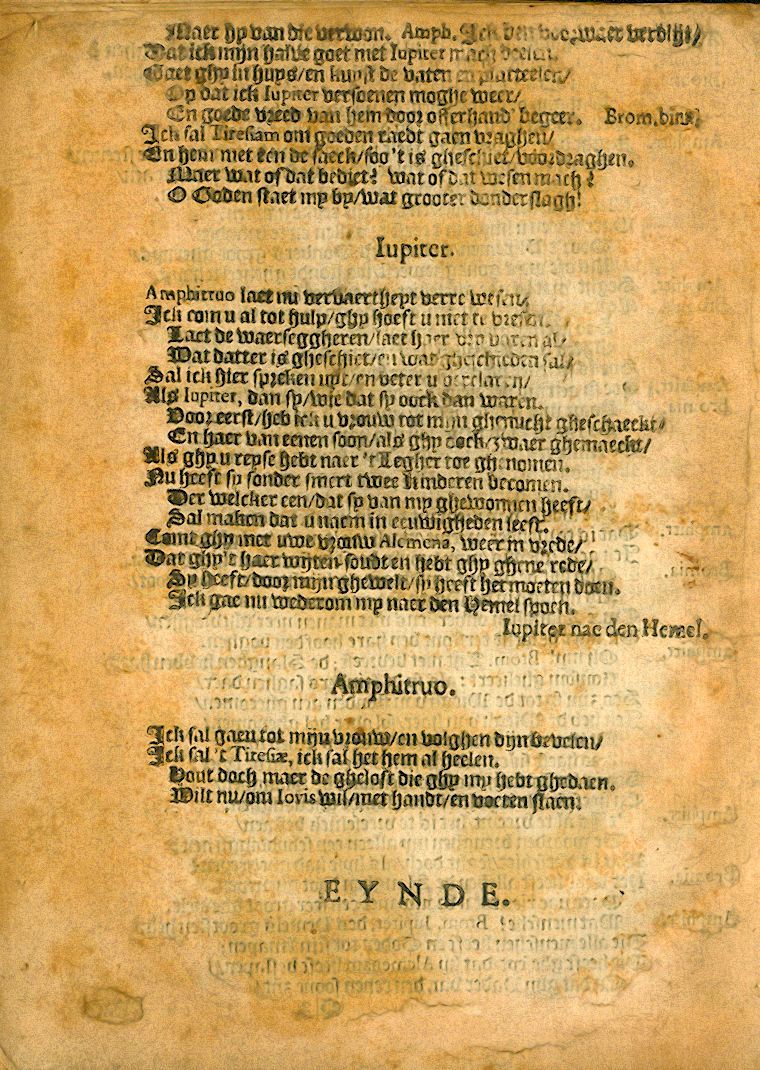 Maer hy van die verwon. Amph. Ick ben voorwaer verblijt/
Dat ick mijn halve goet met Iupiter mach deelen.
Gaet ghy in huys/en kuyst de vaten en platteelen/
Op dat ick Iupiter versoenen moghe weer/
En goede vreed van hem door offerhand' begeer. Brom. bin.
Ick sal Tiresiam om goeden raedt gaen vraghen/
En hem met een de saeck/soo 't is gheschiet/voordraghen.
Maer wat of dat bediet? wat of dat wesen mach?
O Goden staet my by/wat grooter donderslagh!
Iupiter.
Amphitruo laet nu vervaertheyt verre wesen,
Ick com u al tot hulp/ghy hoeft u niet te vresen.
Laet de waerseggheren/laet haer vry varen al/
Wat datter is gheschiet/en wat gheschieden sal/
Sal ick hier spreken uyt/en beter u verclaren/
Als Iupiter, dan sy/wie dat sy oock dan waren.
Voor eerst/heb ick u vrouw tot mijn ghenucht gheschaeckt/
En haer van eenen soon/als ghy oock/zwaer ghemaeckt/
Als ghy u reyse hebt naer 't Legher toe ghenomen.
Nu heeft sy sonder smert twee kinderen becomen.
Der welcker een/dat sy van my ghewonnen heeft/
Sal maken dat u naem in eeuwigheden leeft.
Comt ghy met uwe vrouw Alcmena, weer in vrede/
Dat ghy't haer wijten soudt en hebt ghy gheene rede/
Sy heeft/door mijn ghewelt/sy heeft het moeten doen.
Ick gae nu wederom my naer den Hemel spoen.
Iupiter nae den Hemel.
Amphitruo.
Ick sal gaen tot mijn vrouw/en volghen dijn bevelen/
Ick sal 't Tiresiæ, ick sal het hem al heelen.
Hout doch maer de gheloft die ghy my hebt ghedaen.
Wilt nu/om Iovis wil/met handt/en voeten slaen.
EYNDE.